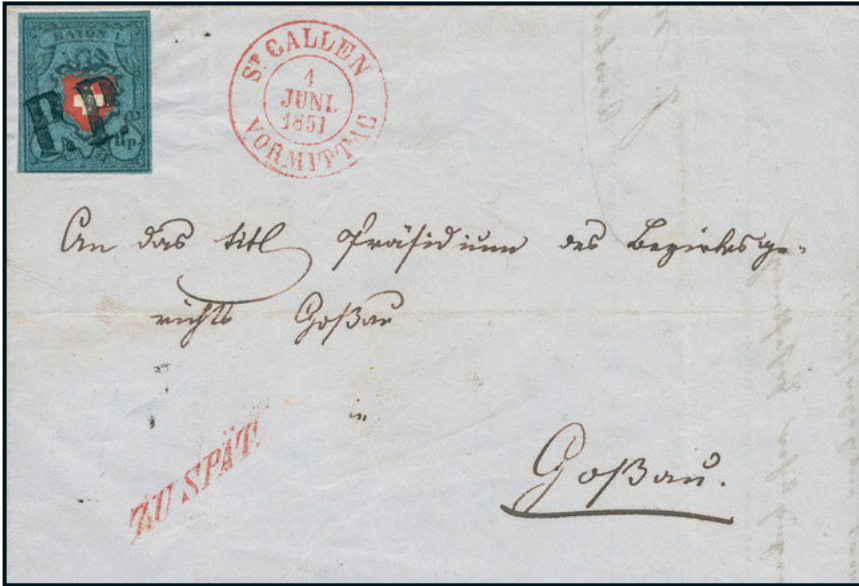 RAYON I.
P.P.
Rp.
ST GALLEN
1
JUNI.
1851
VORMITTAG
An das titl Präsidium des Bezirksge-
richts Goßau
in
Goßau.
ZU SPÄT.